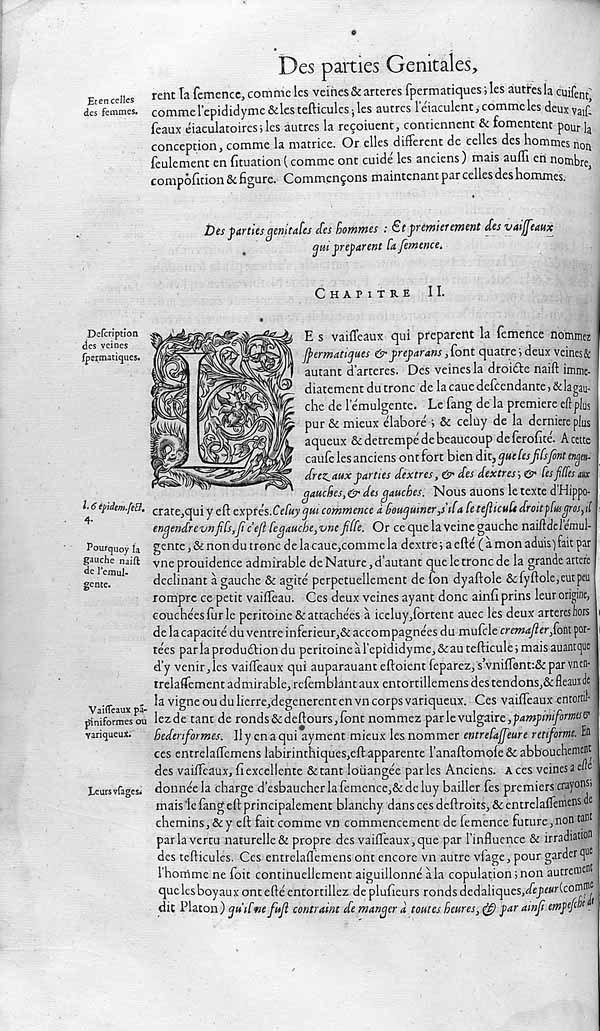 Des parties Genitales,
Et en celles
des femmes.
rent la ſemence, comme les veines & arteres ſpermatiques; les autres la cuiſent,
comme l'epididyme & les teſticules; les autres l'éiaculent, comme les deux vaiſ-
ſeaux éiaculatoires; les autres la reçoiuent, contiennent & fomentent pour la
conception, comme la matrice. Or elles different de celles des hommes non
ſeulement en ſituation (comme ont cuidé les anciens) mais auſſi en nombre,
compoſition & figure. Commençons maintenant par celles des hommes.
Des parties genitales des hommes : Et premierement des vaiſſeaux
qui preparent la ſemence.
CHAPITRE II.
Deſcription
des veines
ſpermatiques.
LEs vaiſſeaux qui preparent la ſemence nommez
ſpermatiques & preparans, ſont quatre; deux veines &
autant d'arteres. Des veines la droicte naiſt imme-
diatement du tronc de la caue deſcendante, & la gau-
che de l'émulgente. Le ſang de la premiere eſt plus
pur & mieux élaboré; & celuy de la derniere plus
aqueux & detrempé de beaucoup de ſeroſité. A cette
cauſe les anciens ont fort bien dit, que les fils ſont engen-
drez aux parties dextres, & des dextres; & les filles aux
gauches, & des gauches. Nous auons le texte d'Hippo-
l. 6 epidem. ſect.
4.
crate, qui y eſt exprés. Celuy qui commence à bouquiner, s'il a le teſticule droit plus gros, il
engendre vn fils, ſi c'eſt le gauche, vne fille. Or ce que la veine gauche naiſt de l'émul-
Pourquoy la
gauche naiſt
de l'emul-
gente.
gente, & non du tronc de la caue, comme la dextre; a eſté (à mon aduis) fait par
vne prouidence admirable de Nature, d'autant que le tronc de la grande artere
declinant à gauche & agité perpetuellement de ſon dyaſtole & ſyſtole, eut peu
rompre ce petit vaiſſeau. Ces deux veines ayant donc ainſi prins leur origine,
couchées ſur le peritoine & attachées à iceluy, ſortent auec les deux arteres hors
de la capacité du ventre inferieur, & accompagnées du muſcle cremaſter, ſont por-
tées par la production du peritoine à l'epididyme, & au teſticule; mais auant que
d'y venir, les vaiſſeaux qui auparauant eſtoient ſeparez, s'vniſſent: & par vn en-
trelaſſement admirable, reſemblant aux entortillemens des tendons, & fleaux de
la vigne ou du lierre, degenerent en vn corps variqueux. Ces vaiſſeaux entortil-
Vaiſſeaux pā-
piniformes ou
variqueux.
lez de tant de ronds & deſtours, ſont nommez par le vulgaire, pampiniformes &
hederiformes. Il y en a qui ayment mieux les nommer entrelaſſeure retiforme. En
ces entrelaſſemens labirinthiques, eſt apparente l'anaſtomoſe & abbouchement
des vaiſſeaux, ſi excellente & tant loüangée par les Anciens. A ces veines a eſté
Leurs vſages.
donnée la charge d'esbaucher la ſemence, & de luy bailler ſes premiers crayons;
mais le ſang eſt principalement blanchy dans ces deſtroits, & entrelaſſemens de
chemins, & y eſt fait comme vn commencement de ſemence future, non tant
par la vertu naturelle & propre des vaiſſeaux, que par l'influence & irradiation
des teſticules. Ces entrelaſſemens ont encore vn autre vſage, pour garder que
l'homme ne ſoit continuellement aiguillonné à la copulation; non autrement
que les boyaux ont eſté entortillez de pluſieurs ronds dedaliques, de peur (comme
dit Platon) qu'il ne fuſt contraint de manger à toutes heures, & par ainſi empeſché de